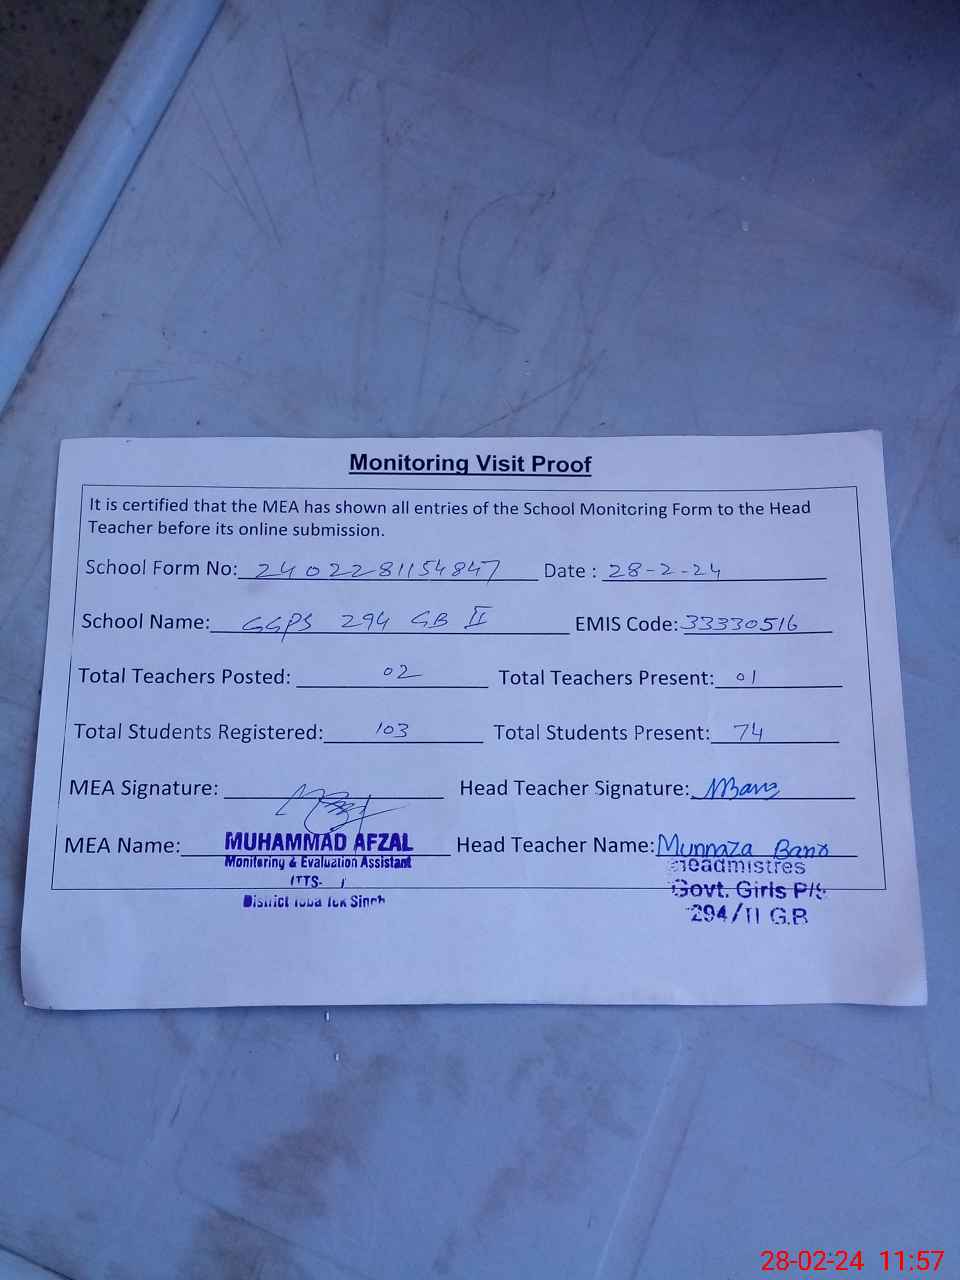 Monitoring Visit Proof
It is certified that the MEA has shown all entries of the School Monitoring Form to the Head
Teacher before its online submission.
School Form No: 2402281154847 Date : 28-2-24
School Name: GGPS 294 GB II EMIS Code: 33330516
Total Teachers Posted: 02 Total Teachers Present: 01
Total Students Registered: 103 Total Students Present: 74
MEA Signature: Head Teacher Signature: MBano
MEA Name: MUHAMMAD AFZAL Head Teacher Name: Munnaza Bano
Monitoring & Evaluation Assistant
Headmistres
TTS-
Govt. Girls P/S
District Toba Tek Singh
294/II G.B
28-02-24 11:57